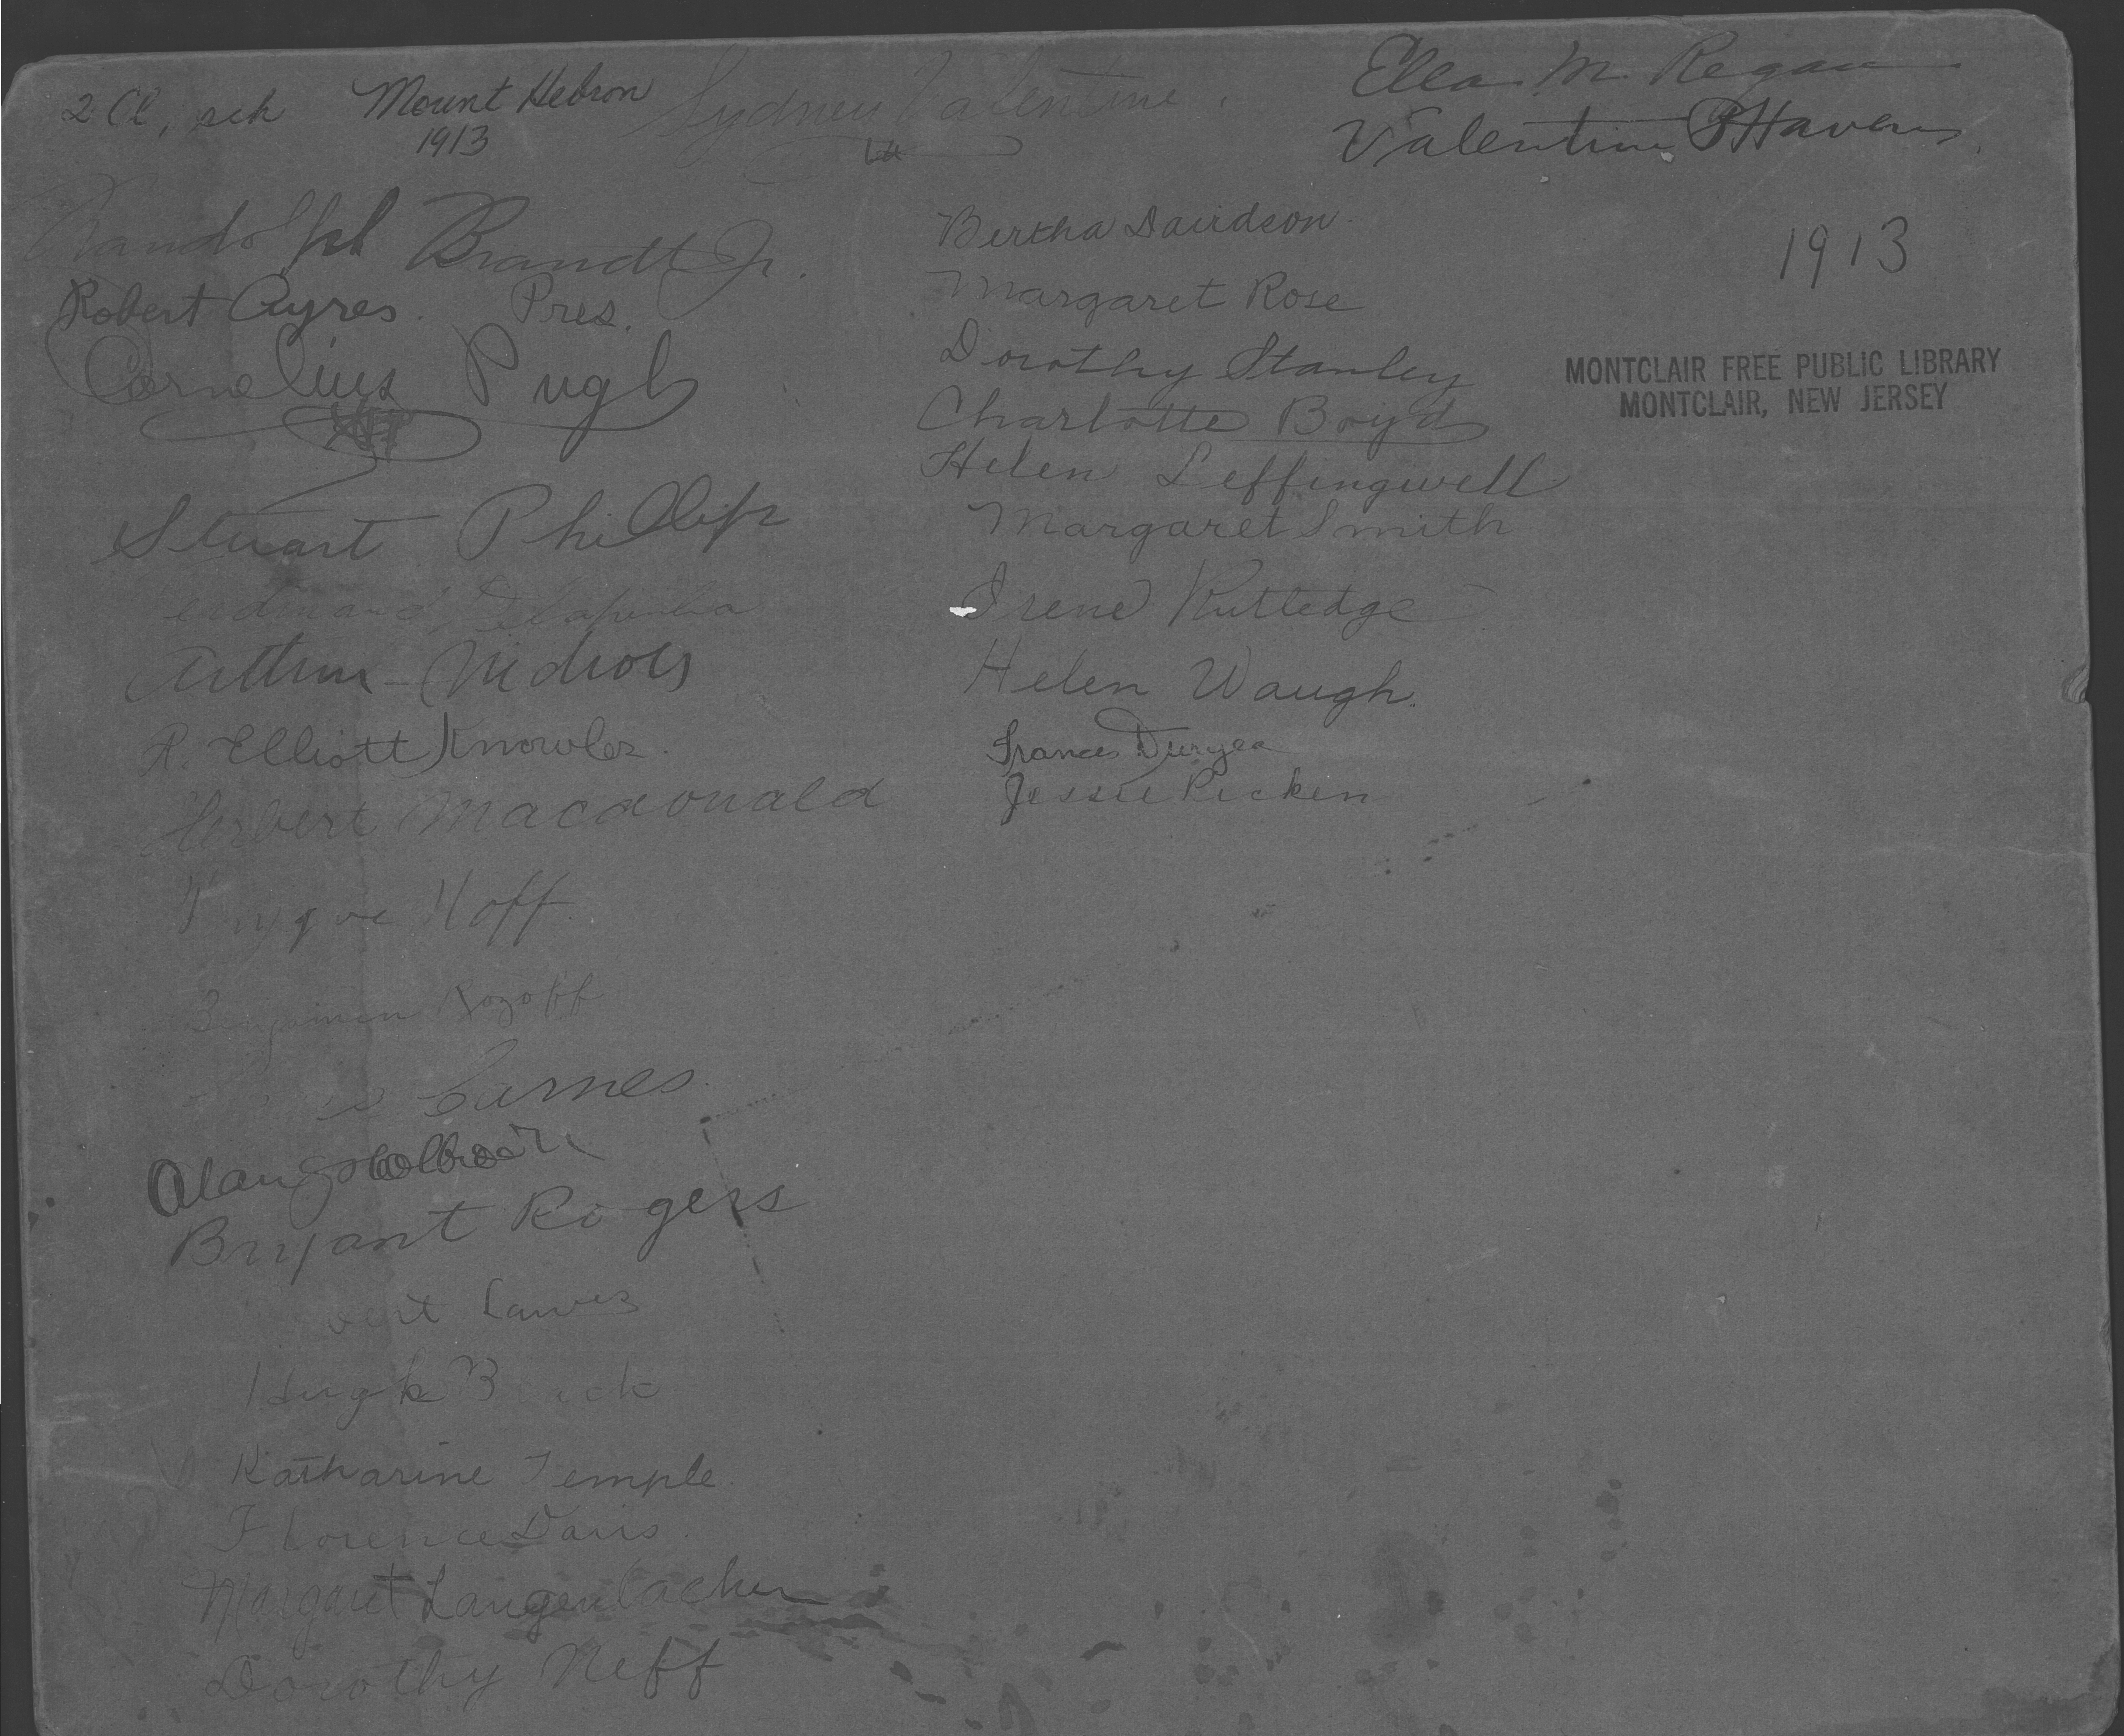 2 Cl, sch Mount Hebron
1913
Sydney Valentine.
Ella M. Regan
Valentine B Havens,
1913
MONTCLAIR FREE PUBLIC LIBRARY
MONTCLAIR, NEW JERSEY
Randolph Brandt Jr.
Robert Ayres. Pres.
Cornelius Pugh
Stuart Phillips
Arthur Nichols
R. Elliott Knowles.
Herbert Macdonald
Trygve Hoff.
Benjamin Rogoff
Barnes.
Alan Holbrook
Bryant Rogers
Hugh
Katharine Temple
Florence Davis.
Margaret Langenbacher
Dorothy Neff
Bertha Davidson.
Margaret Rose
Dorothy Stanley
Charlotte Boyd
Helen Leffingwell
Margaret Smith
Irene Rutledge
Helen Waugh.
Frances Duryea
Jessie Picken